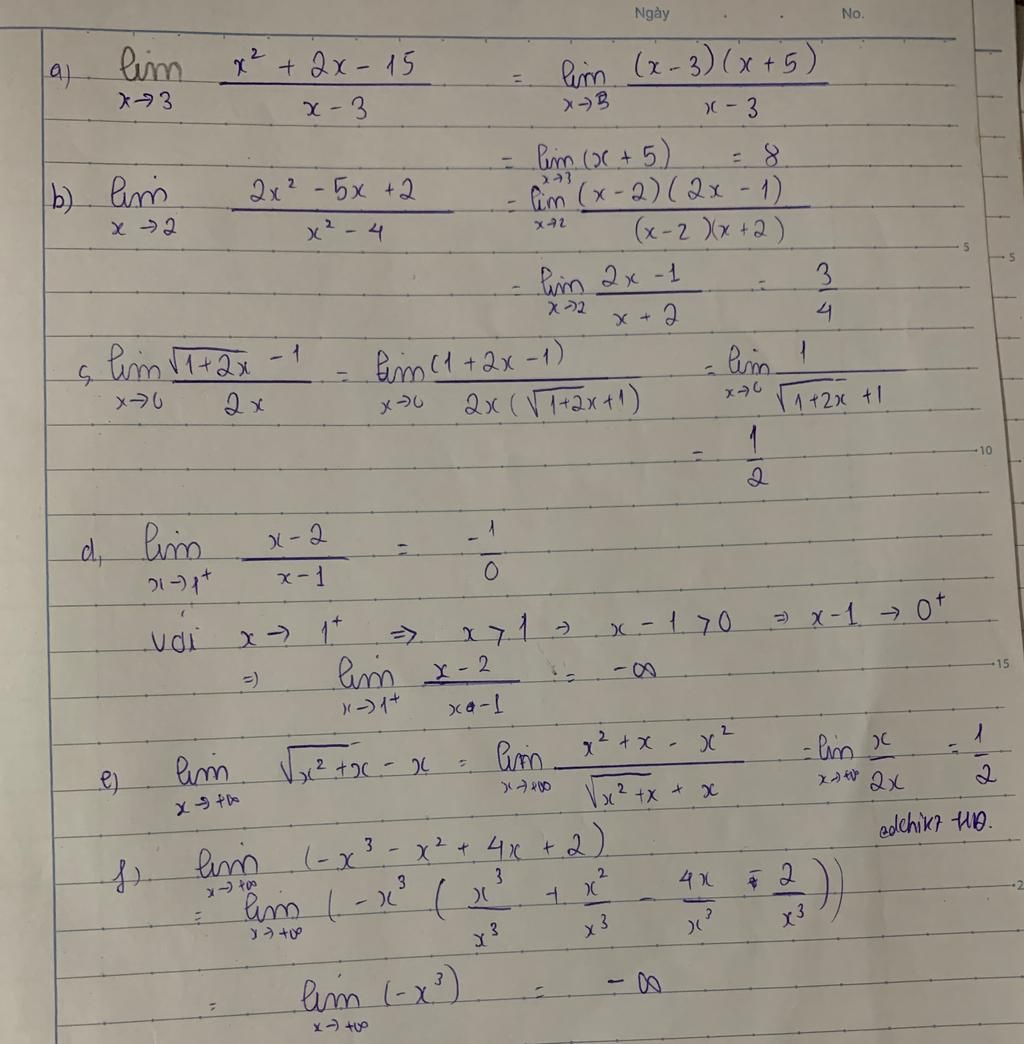 Ngày . . No.
a) lim x→3 (x² + 2x - 15)/(x - 3) = lim x→3 ((x - 3)(x + 5))/(x - 3)
= lim x→3 (x + 5) = 8
b) lim x→2 (2x² - 5x + 2)/(x² - 4) = lim x→2 ((x - 2)(2x - 1))/((x - 2)(x + 2))
5 5
= lim x→2 (2x - 1)/(x + 2) = 3/4
c, lim x→0 (√(1+2x) - 1)/(2x) = lim x→0 (1 + 2x - 1)/(2x(√(1+2x) + 1)) = lim x→0 1/(√(1+2x) + 1)
= 1/2
10
d, lim x→1⁺ (x - 2)/(x - 1) = -1/0
với x → 1⁺ ⇒ x > 1 → x - 1 > 0 ⇒ x - 1 → 0⁺
⇒ lim x→1⁺ (x - 2)/(x - 1) = -∞
15
e) lim x→+∞ √(x² + x) - x = lim x→+∞ (x² + x - x²)/(√(x² + x) + x) = lim x→+∞ x/(2x) = 1/2
f) lim x→+∞ (-x³ - x² + 4x + 2)
= lim x→+∞ (-x³ (x³/x³ + x²/x³ - 4x/x³ - 2/x³))
= lim x→+∞ (-x³) = -∞